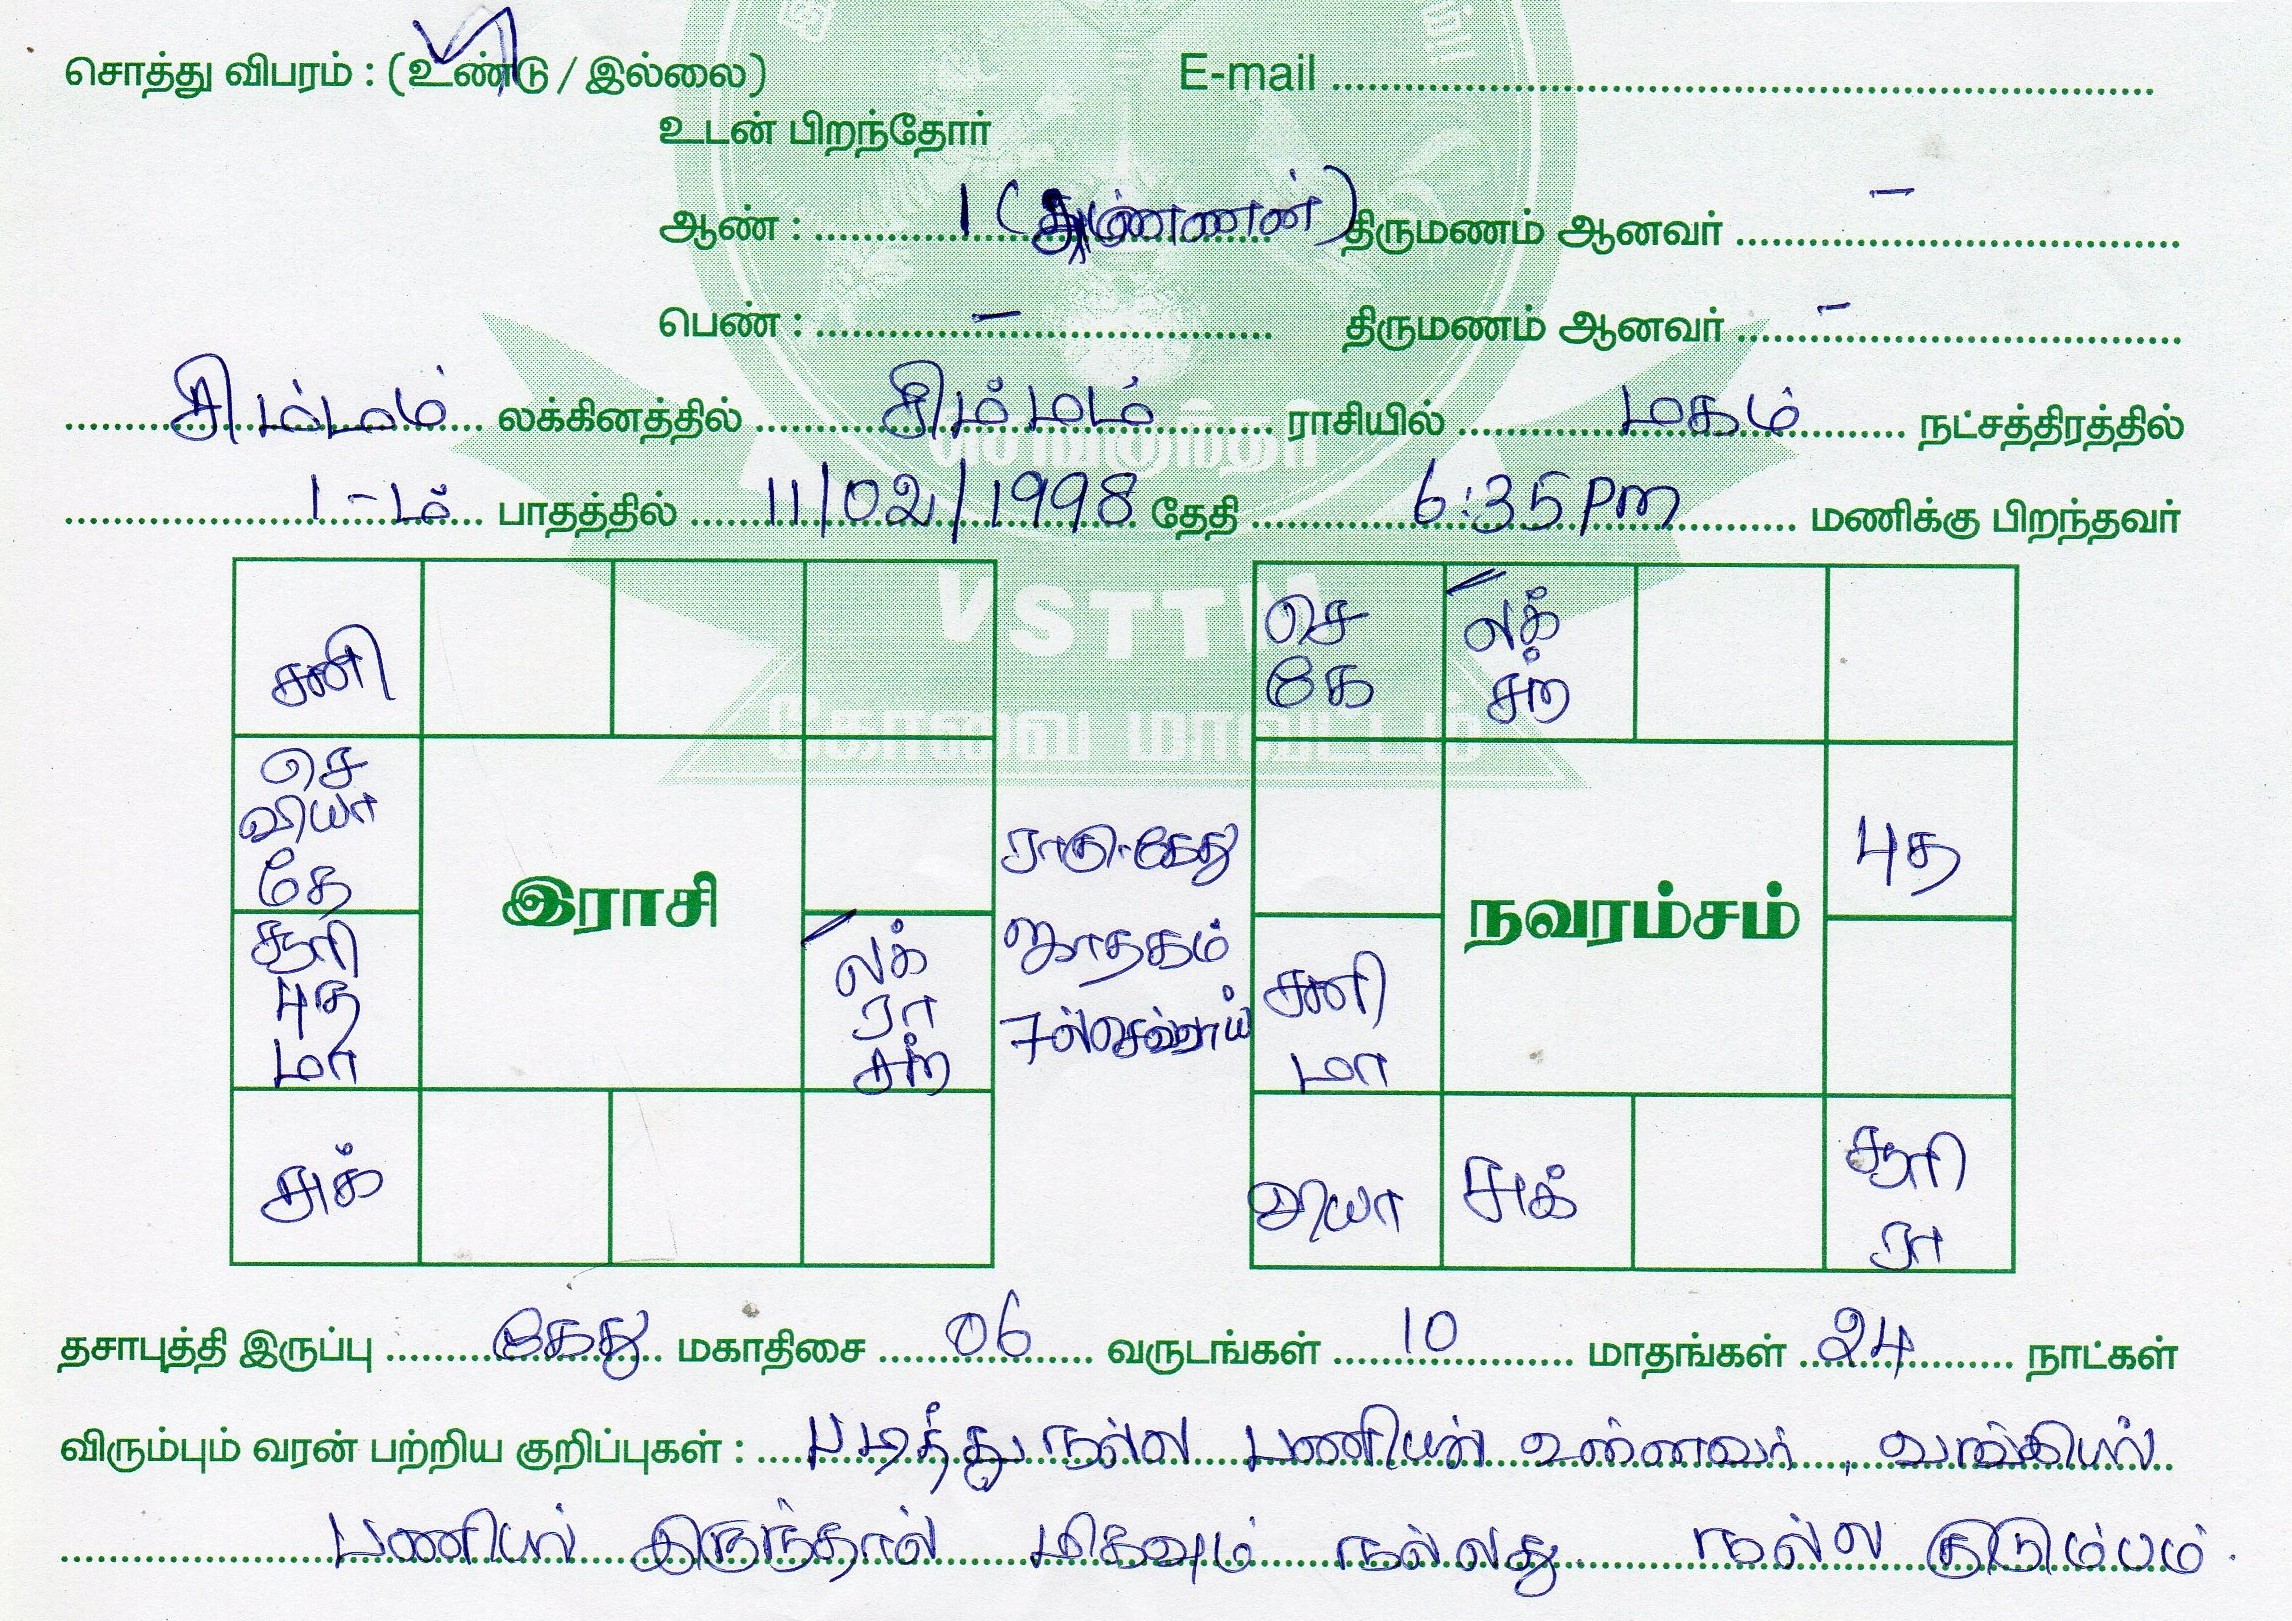 சொத்து விபரம் : (உண்டு / இல்லை) E-mail
உடன் பிறந்தோர்
ஆண் : 1 (அண்ணன்) திருமணம் ஆனவர் -
பெண் : - திருமணம் ஆனவர் -
சிம்மம் லக்கினத்தில் சிம்மம் ராசியில் மகம் நட்சத்திரத்தில்
1-ம் பாதத்தில் 11/02/1998 தேதி 6:35 Pm மணிக்கு பிறந்தவர்
செங்குந்தர்
VSTTM
கோவை மாவட்டம்
சனி
செ
வியா
கே
சூரி
புத
மா
சுக்
இராசி
லக்
ரா
சந்
ராகு-கேது
ஜாதகம்
7ல் செவ்வாய்
செ
கே
லக்
சந்
புத
நவரம்சம்
சனி
மா
வியா
சுக்
சூரி
ரா
தசாபுத்தி இருப்பு கேது மகாதிசை 06 வருடங்கள் 10 மாதங்கள் 24 நாட்கள்
விரும்பும் வரன் பற்றிய குறிப்புகள் : படித்து நல்ல பணியில் உள்ளவர், வங்கியில்
பணியில் இருந்தால் மிகவும் நல்லது. நல்ல குடும்பம்.